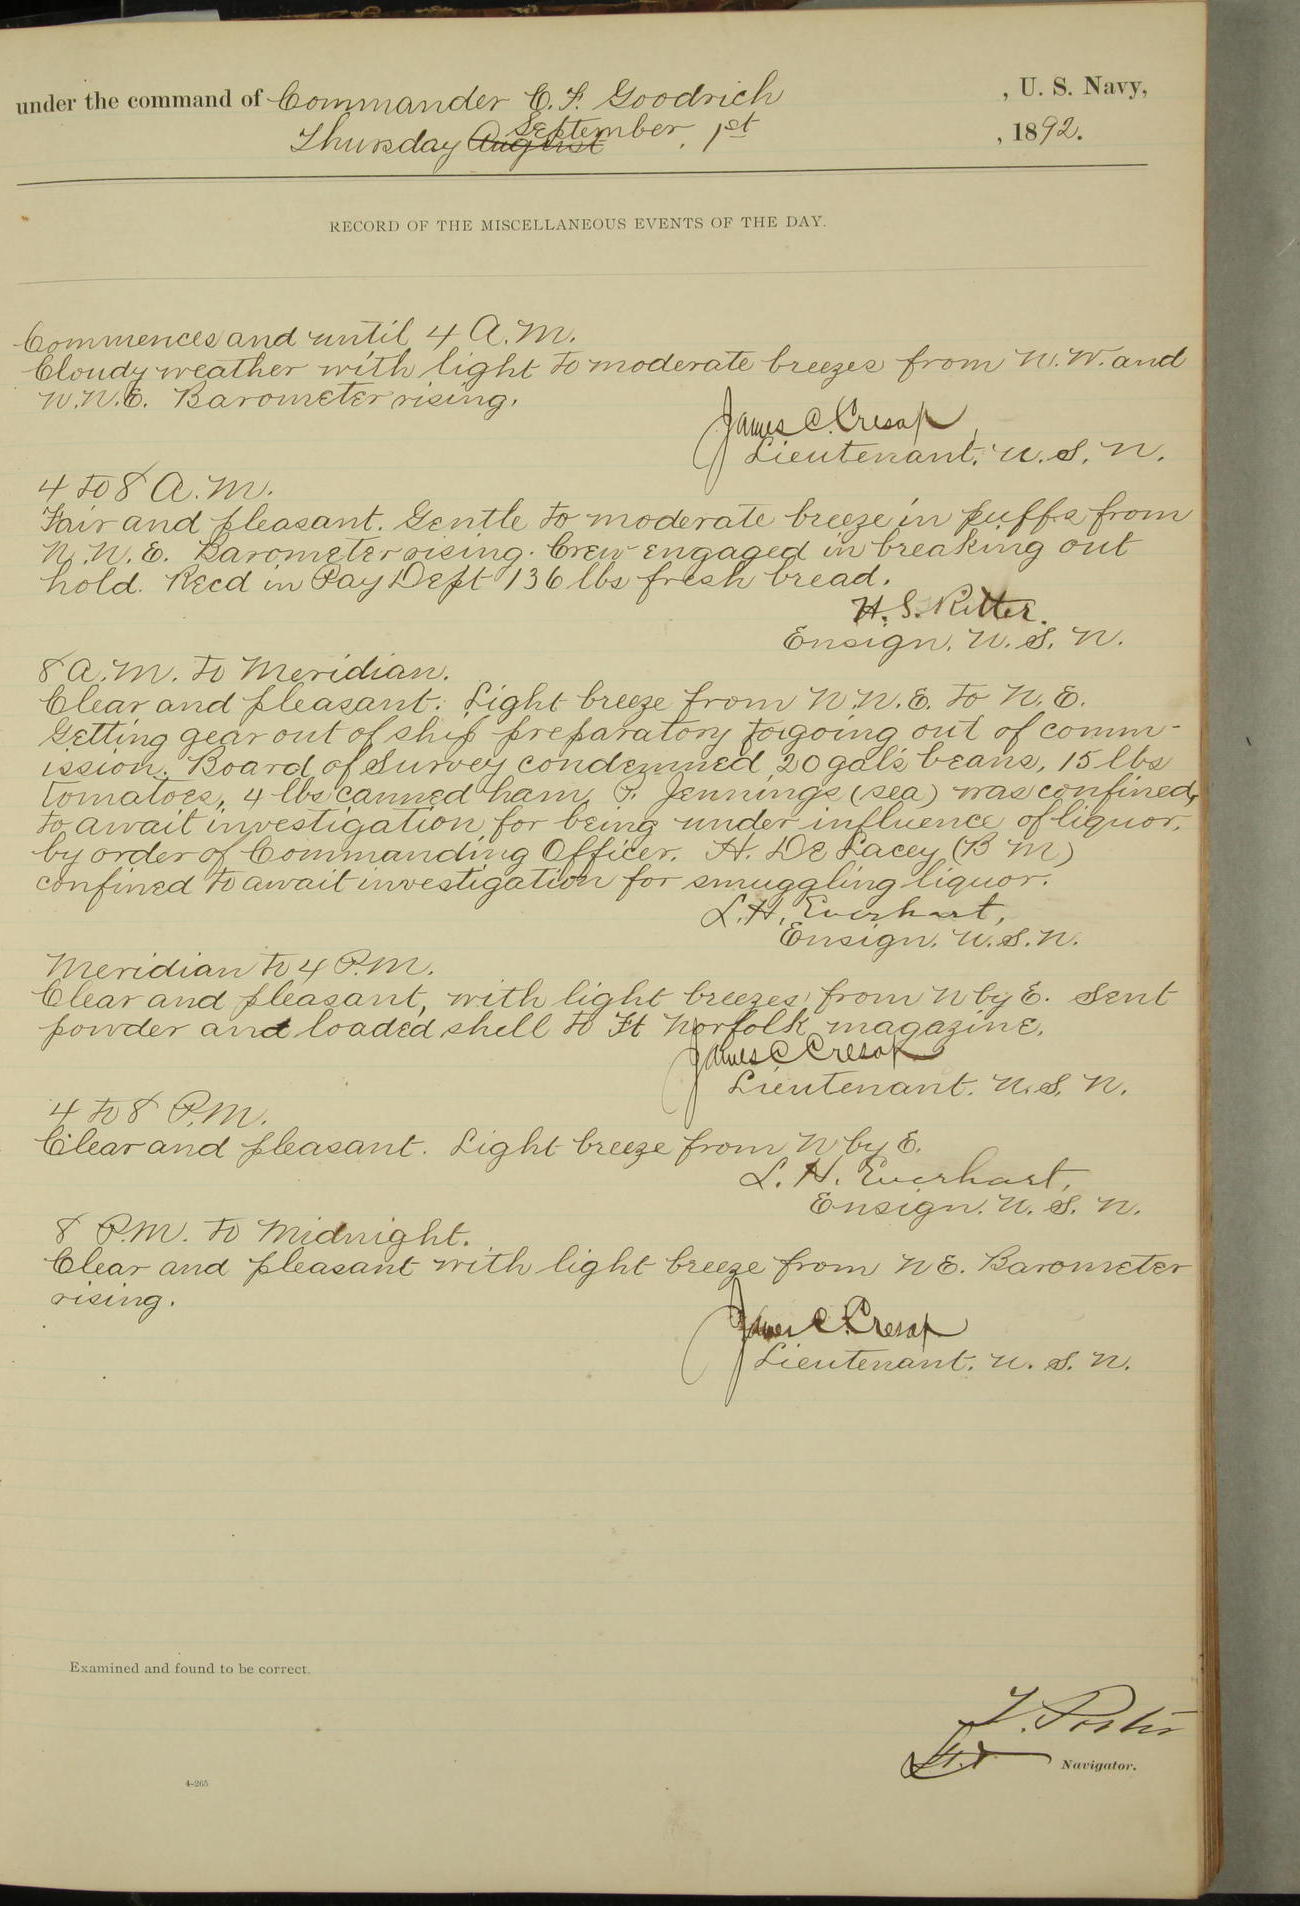 under the command of Commander C. F. Goodrich , U. S. Navy,
Thursday August September, 1st , 1892.
RECORD OF THE MISCELLANEOUS EVENTS OF THE DAY.
Commences and until 4 A.M.
Cloudy weather with light to moderate breezes from N.W. and
N.N.E. Barometer rising.
James C. Cresap
Lieutenant, U.S.N.
4 to 8 A.M.
Fair and pleasant. Gentle to moderate breeze in puffs from
N.N.E. Barometer rising. Crew engaged in breaking out
hold. Recd in Pay Dept 136 lbs fresh bread.
H. S. Ritter.
Ensign, U.S.N.
8 A.M. to Meridian.
Clear and pleasant. Light breeze from N.N.E. to N.E.
Getting gear out of ship preparatory to going out of comm-
ission. Board of Survey condemned 20 gals beans, 15 lbs
tomatoes, 4 lbs canned ham. Jennings (sea) was confined,
to await investigation for being under influence of liquor,
by order of Commanding Officer. H. De Lacey (B M)
confined to await investigation for smuggling liquor.
L. H. Everhart,
Ensign. U.S.N.
Meridian to 4 P.M.
Clear and pleasant, with light breezes from N by E. Sent
powder and loaded shell to Ft Norfolk magazine.
James C Cresap
Lieutenant. U.S.N.
4 to 8 P.M.
Clear and pleasant. Light breeze from N by E.
L. H. Everhart,
Ensign. U.S.N.
8 P.M. to Midnight.
Clear and pleasant with light breeze from NE. Barometer
rising.
James C. Cresap
Lieutenant. U.S.N.
Examined and found to be correct.
Porter
Lt. Navigator.
4-265